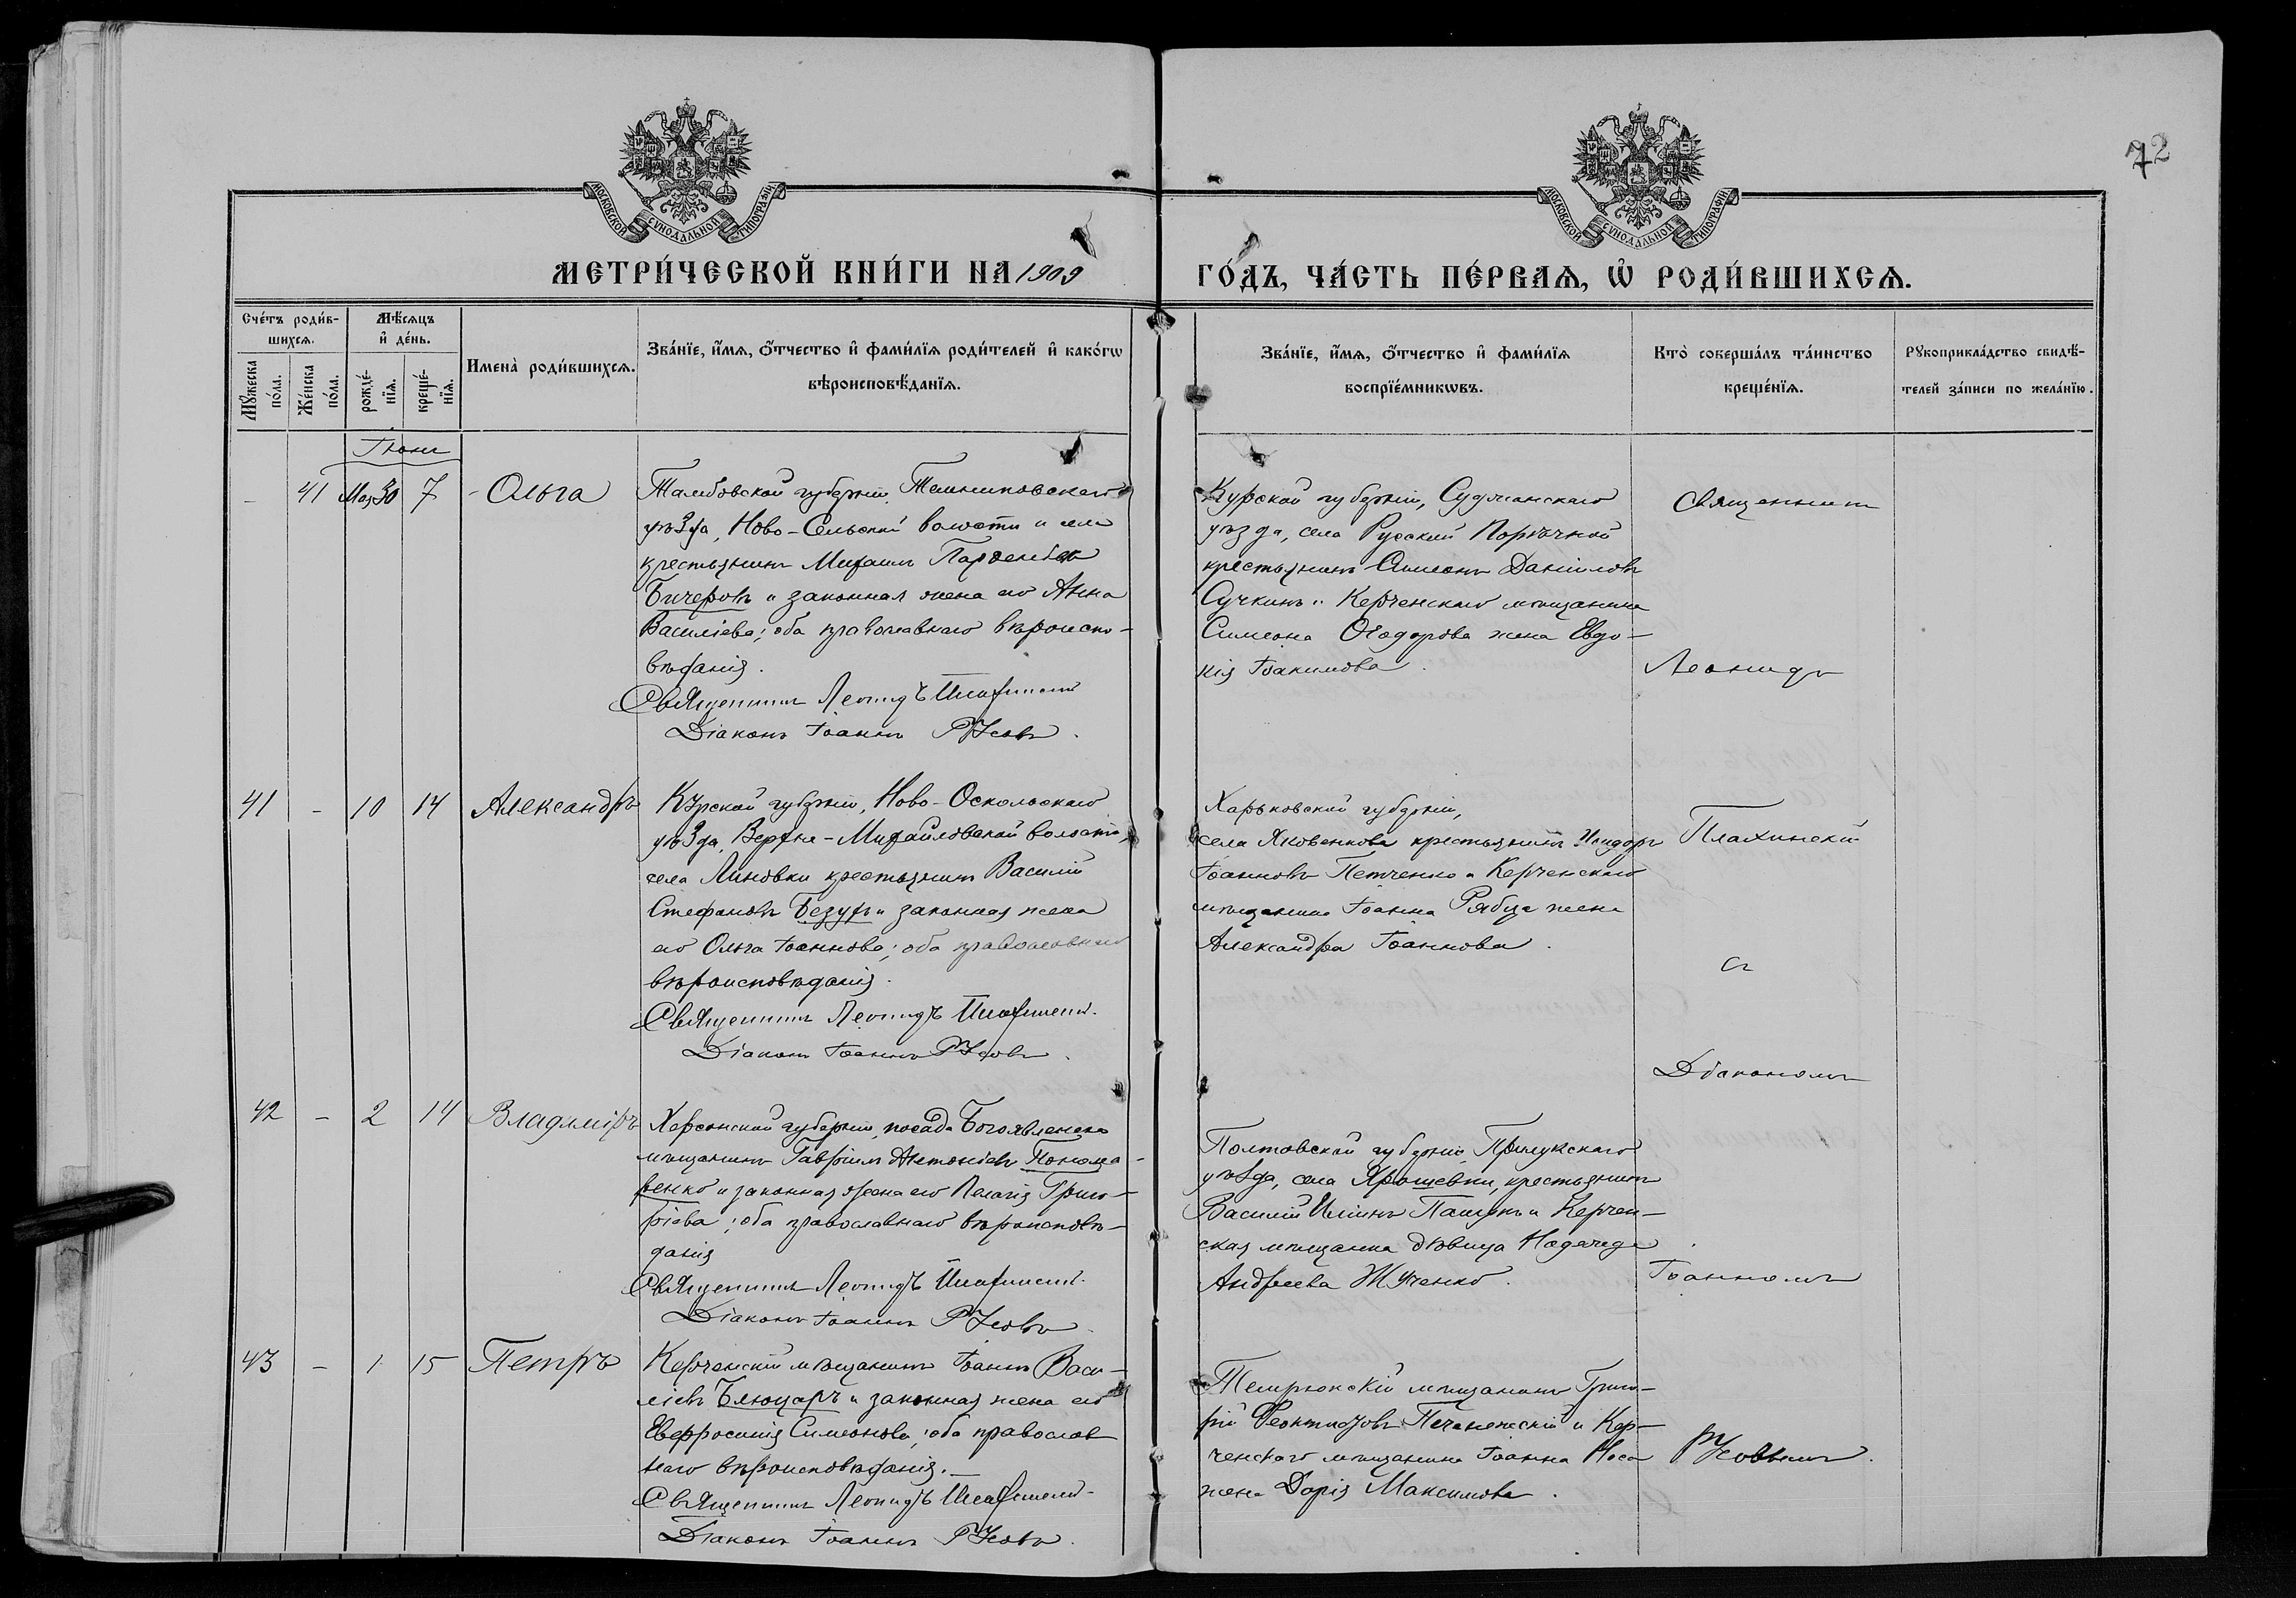 72
МОСКОВСКОЙ СУНОДАЛЬНОЙ ТИПОГРАФІИ
МОСКОВСКОЙ СУНОДАЛЬНОЙ ТИПОГРАФІИ
МЕТРИ́ЧЕСКОЙ КНИ́ГИ НА 1909
ГО́ДЪ, ЧА́СТЬ ПЕ́РВАЯ, Ѡ РОДИ́ВШИХСЯ.
Сче́тъ роди́в-
шихся.
Мѣ́сяцъ
и де́нь.
Мꙋ́жеска
по́ла.
Же́нска
по́ла.
рожде́-
нїя.
креще́-
нїя.
Имена̀ роди́вшихся.
Зва́нїе, и́мя, ѻ́тчество и фами́лїя роди́телей и како́гѡ
вѣроисповѣ́данїя.
Зва́нїе, и́мя, ѻ́тчество и фами́лїя
воспрїе́мникѡвъ.
Кто̀ соверша́лъ та́инство
креще́нїя.
Рꙋкоприкла́дство свидѣ́-
телей за́писи по жела́нїю.
Іюнь
- 41 Мая 30 7 Ольга
Тамбовской губерніи, Темниковскаго
уѣзда, Ново-Сельской волости и села
крестьянинъ Михаилъ Парѳеніевъ
Бичеровъ и законная жена его Анна
Василіева; оба православнаго вѣроиспо-
вѣданія.
Священникъ Леонидъ Плахинскій
Діаконъ Іоаннъ Русовъ.
Курской губерніи, Суджанскаго
уѣзда, села Русской Порѣчной
крестьянинъ Симеонъ Даніиловъ
Сучкинъ и Керченскаго мѣщанина
Симеона Ѳеодорова жена Евдо-
кія Іоакимова.
Священникъ
Леонидъ
41 - 10 14 Александръ
Курской губерніи, Ново-Оскольскаго
уѣзда, Верхне-Михайловской волости,
села Линовки крестьянинъ Василій
Стефановъ Безухъ и законная жена
его Ольга Іоаннова; оба православнаго
вѣроисповѣданія.
Священникъ Леонидъ Плахинскій.
Діаконъ Іоаннъ Русовъ.
Харьковской губерніи,
села Яковенкова крестьянинъ Исидоръ
Іоанновъ Петченко и Керченскаго
мѣщанина Іоанна Рябца жена
Александра Іоаннова.
Плахинскій
съ
Діакономъ
42 - 2 14 Владиміръ
Херсонской губерніи, посада Богоявленска
мѣщанинъ Гавріилъ Антоніевъ Понома-
ренко и законная жена его Пелагія Григо-
ріева; оба православнаго вѣроисповѣ-
данія
Священникъ Леонидъ Плахинскій.
Діаконъ Іоаннъ Русовъ.
Полтовской губерніи, Прилукскаго
уѣзда, села Ярошевки, крестьянинъ
Василій Иліинъ и Керчен-
ская мѣщанка дѣвица Надежда
Андреева Жученко.
Іоанномъ
43 - 1 15 Петръ
Керченскій мѣщанинъ Іоаннъ Васи-
ліевъ Блюцаръ и законная жена его
Евфросинія Симеонова; оба православ
наго вѣроисповѣданія.
Священникъ Леонидъ Плахинскій
Діаконъ Іоаннъ Русовъ.
Темрюкскій мѣщанинъ Григо-
рій Ѳеоктистовъ и Кер-
ченскаго мѣщанина Іоанна Носа
жена Дарія Максимова.
Русовымъ.